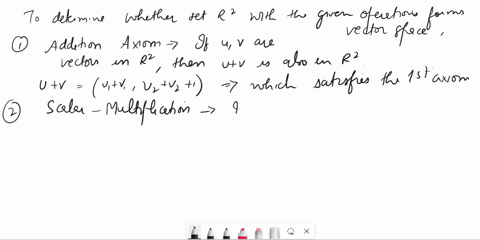 To detrmine whether set R² with the given operations forms
vector space,
① Addition Axiom → If u, v are
vectors in R², then u+v is also in R²
u+v = (u₁+v₁, u₂+v₂+1) ⇒ which satisfies the 1st axiom
② Scalar - Multiplication →